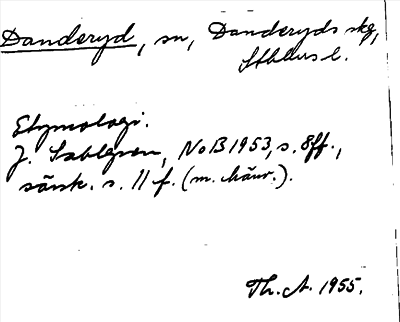 Danderyd, sn, Danderyds skg,
Sthlms l.
Etymologi.
J. Sahlgren, NoB 1953, s. 8ff.,
särsk. s. 11 f. (m. hänv.).
Th. A. 1955.